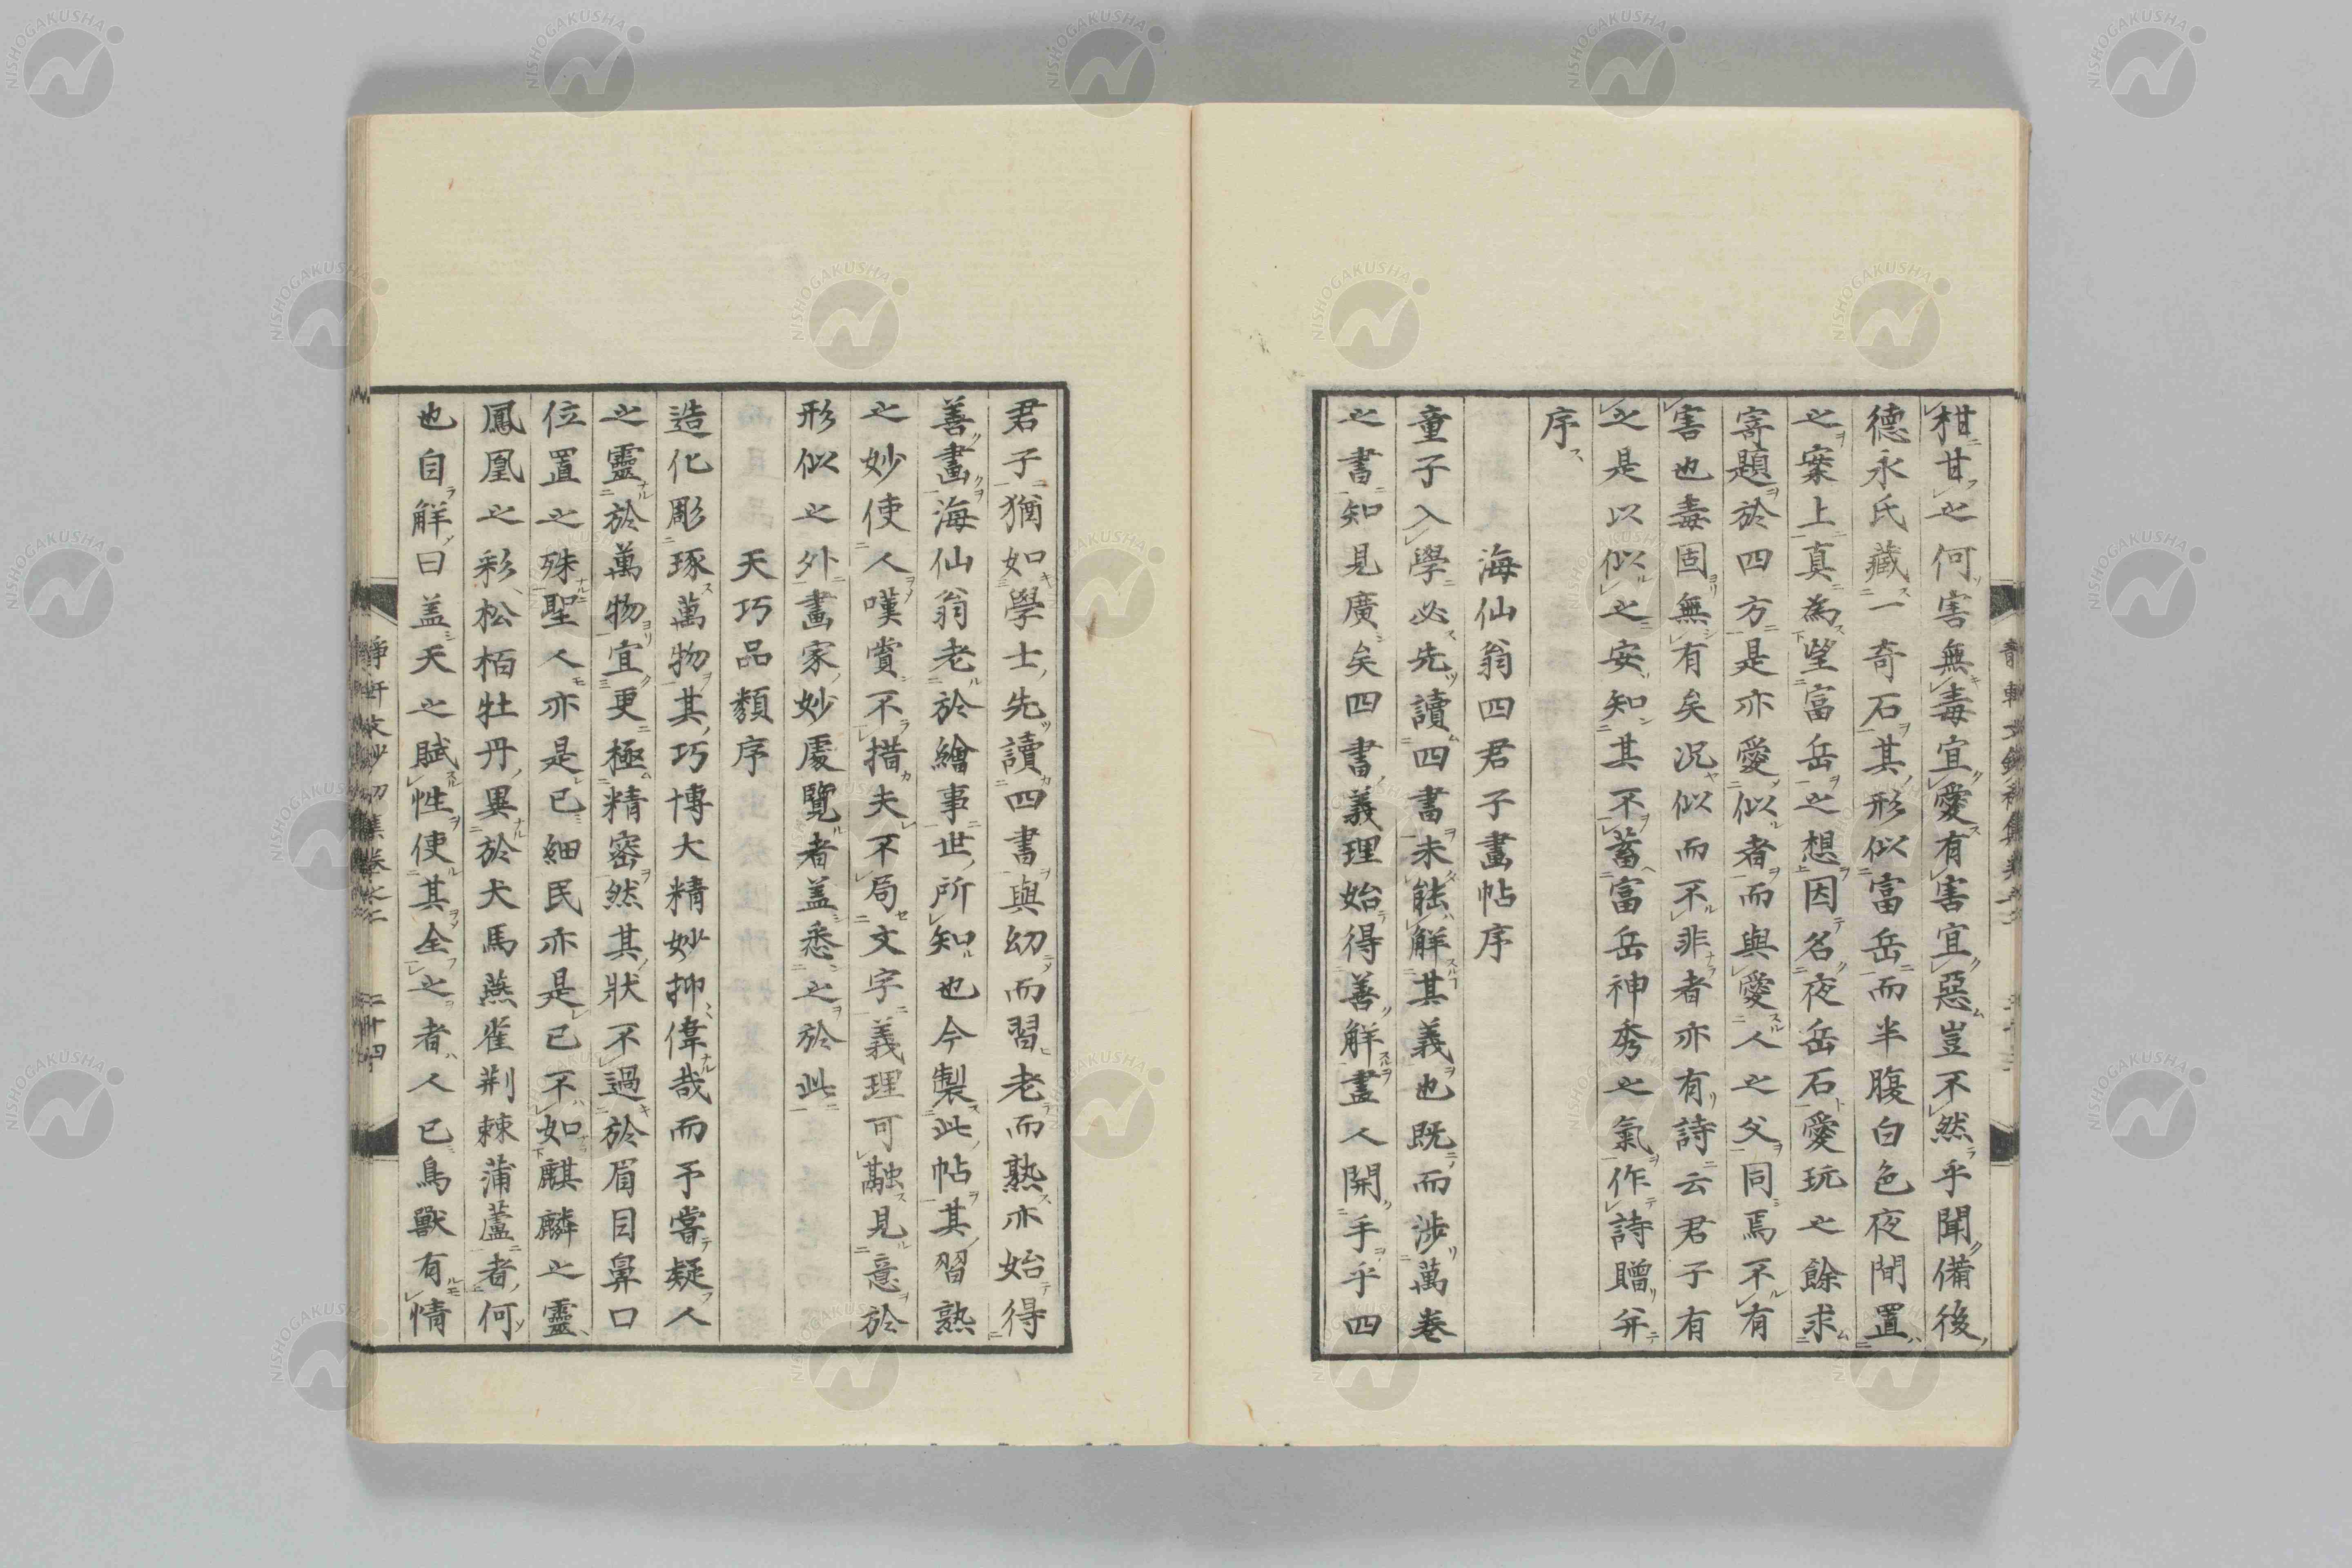 柑甘之何害無毒宜愛有害宜惡豈不然乎聞備後
德永氏藏一奇石其形似富岳而半腹白色夜間置
之寀上真為望富岳之想因名夜岳石愛玩之餘求
寄題於四方是亦愛似者而與愛人之父同焉不有
害也毒固無有矣况似而不非者亦有詩云君子有
之是以似之安知其不蓄富岳神秀之氣作詩贈并
序
海仙翁四君子畫帖序
童子入學必先讀四書未能解其義也既而涉萬卷
之書知見廣矣四書義理始得善解畫人開手乎四
君子猶如學士先讀四書與幼而習老而熟亦始得
善畫海仙翁老於繪事世所知也今製此帖其習熟
之妙使人嘆賞不措夫不局文字義理可融見意於
形似之外畫家妙處覽者盖悉之於此
天巧品類序
造化彫琢萬物其巧博大精妙抑偉哉而予嘗疑人
之靈於萬物宜更極精密然其狀不過於眉目鼻口
位置之殊聖人亦是已細民亦是已不如麒麟之靈
鳳凰之彩松栢牡丹異於犬馬燕雀荆棘蒲蘆者何
也自解曰盖天之賦性使其全之者人已鳥獸有情